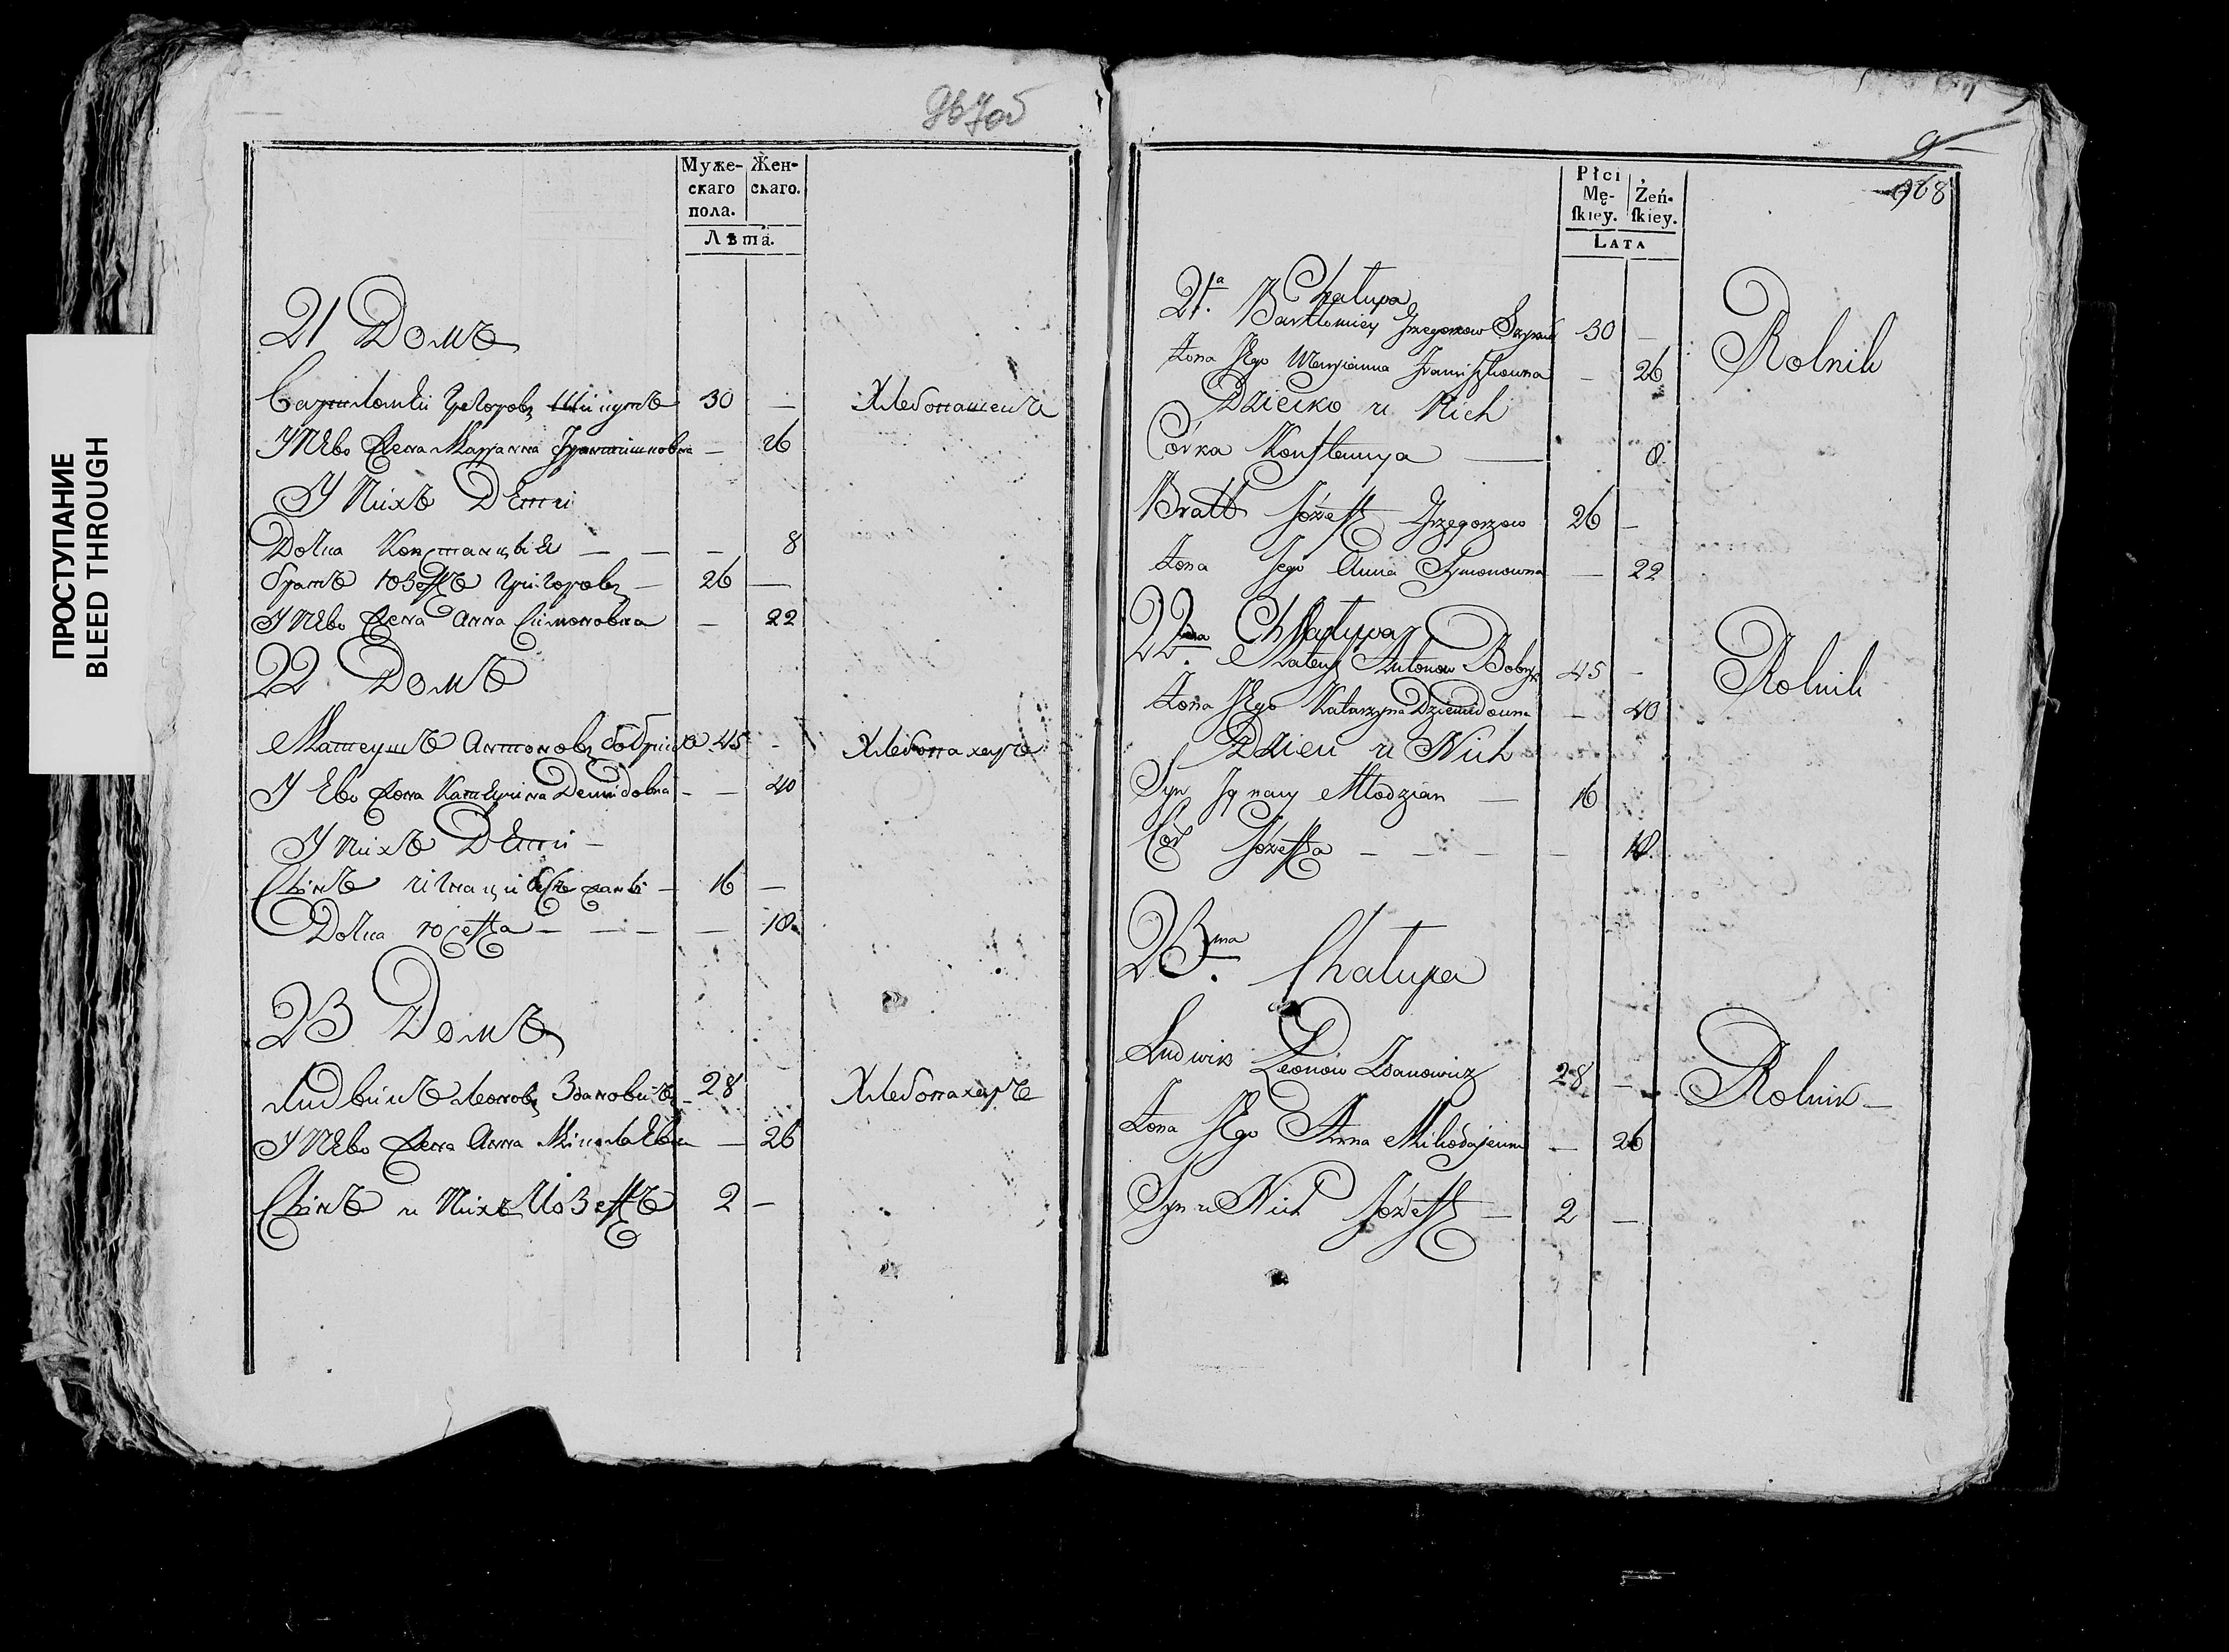 ПРОСТУПАНИЕ
BLEED THROUGH
967об
Муже-
скаго
пола.
Жен-
скаго.
Лѣта.
21 Домъ
Григоровъ 30 — Хлебопашецъ
Жена Марьянна — 26
У Нихъ Дети
Дочка Констанцыя — — — 8
братъ Юзефъ Григоровъ — 26 —
Жена Анна Симоновна — 22
22 Домъ
Матеушъ Антоновъ Бобрикъ 45 - Хлебопахаръ
У Ево Жона Катерина Демидовна - — 40
У Нихъ Дети -
Сынъ Игнацы — 16 —
Дочка Юзефа — — — — 18
23 Домъ
Людвикъ Леоновъ Здановичъ - 28 Хлебопахаръ
Жена Анна — 26
Сынъ у Нихъ Юзефъ 2 —
9
968
Płci
Mę-
ſkiey.
Żeń-
ſkiey.
LATA
21a. Chałupa
Bartłomiey Grzegorzow 30 — Rolnik
Żona Jego Maryianna Franciszkowna — 26
Dziecko u Nich
Córka Konstancya — 8
Bratt Józeff Grzegorzow 26 —
Żona Jego Anna Symonowna — 22
22da. Chałupa
Mateusz Antonow Bobryk 45 - Rolnik
Żona Jego Katarzyna Dziemidowna — 40
Dzieci u Nich
Syn Ignacy Młodzian — 16
Cór Józeffa — — — — — 18.
23cia. Chałupa
Ludwik Leonow Zdanowicz 28 — Rolnik —
Żona Jego Anna Mikołajewna — 26
Syn u Nich Józeff — 2 —